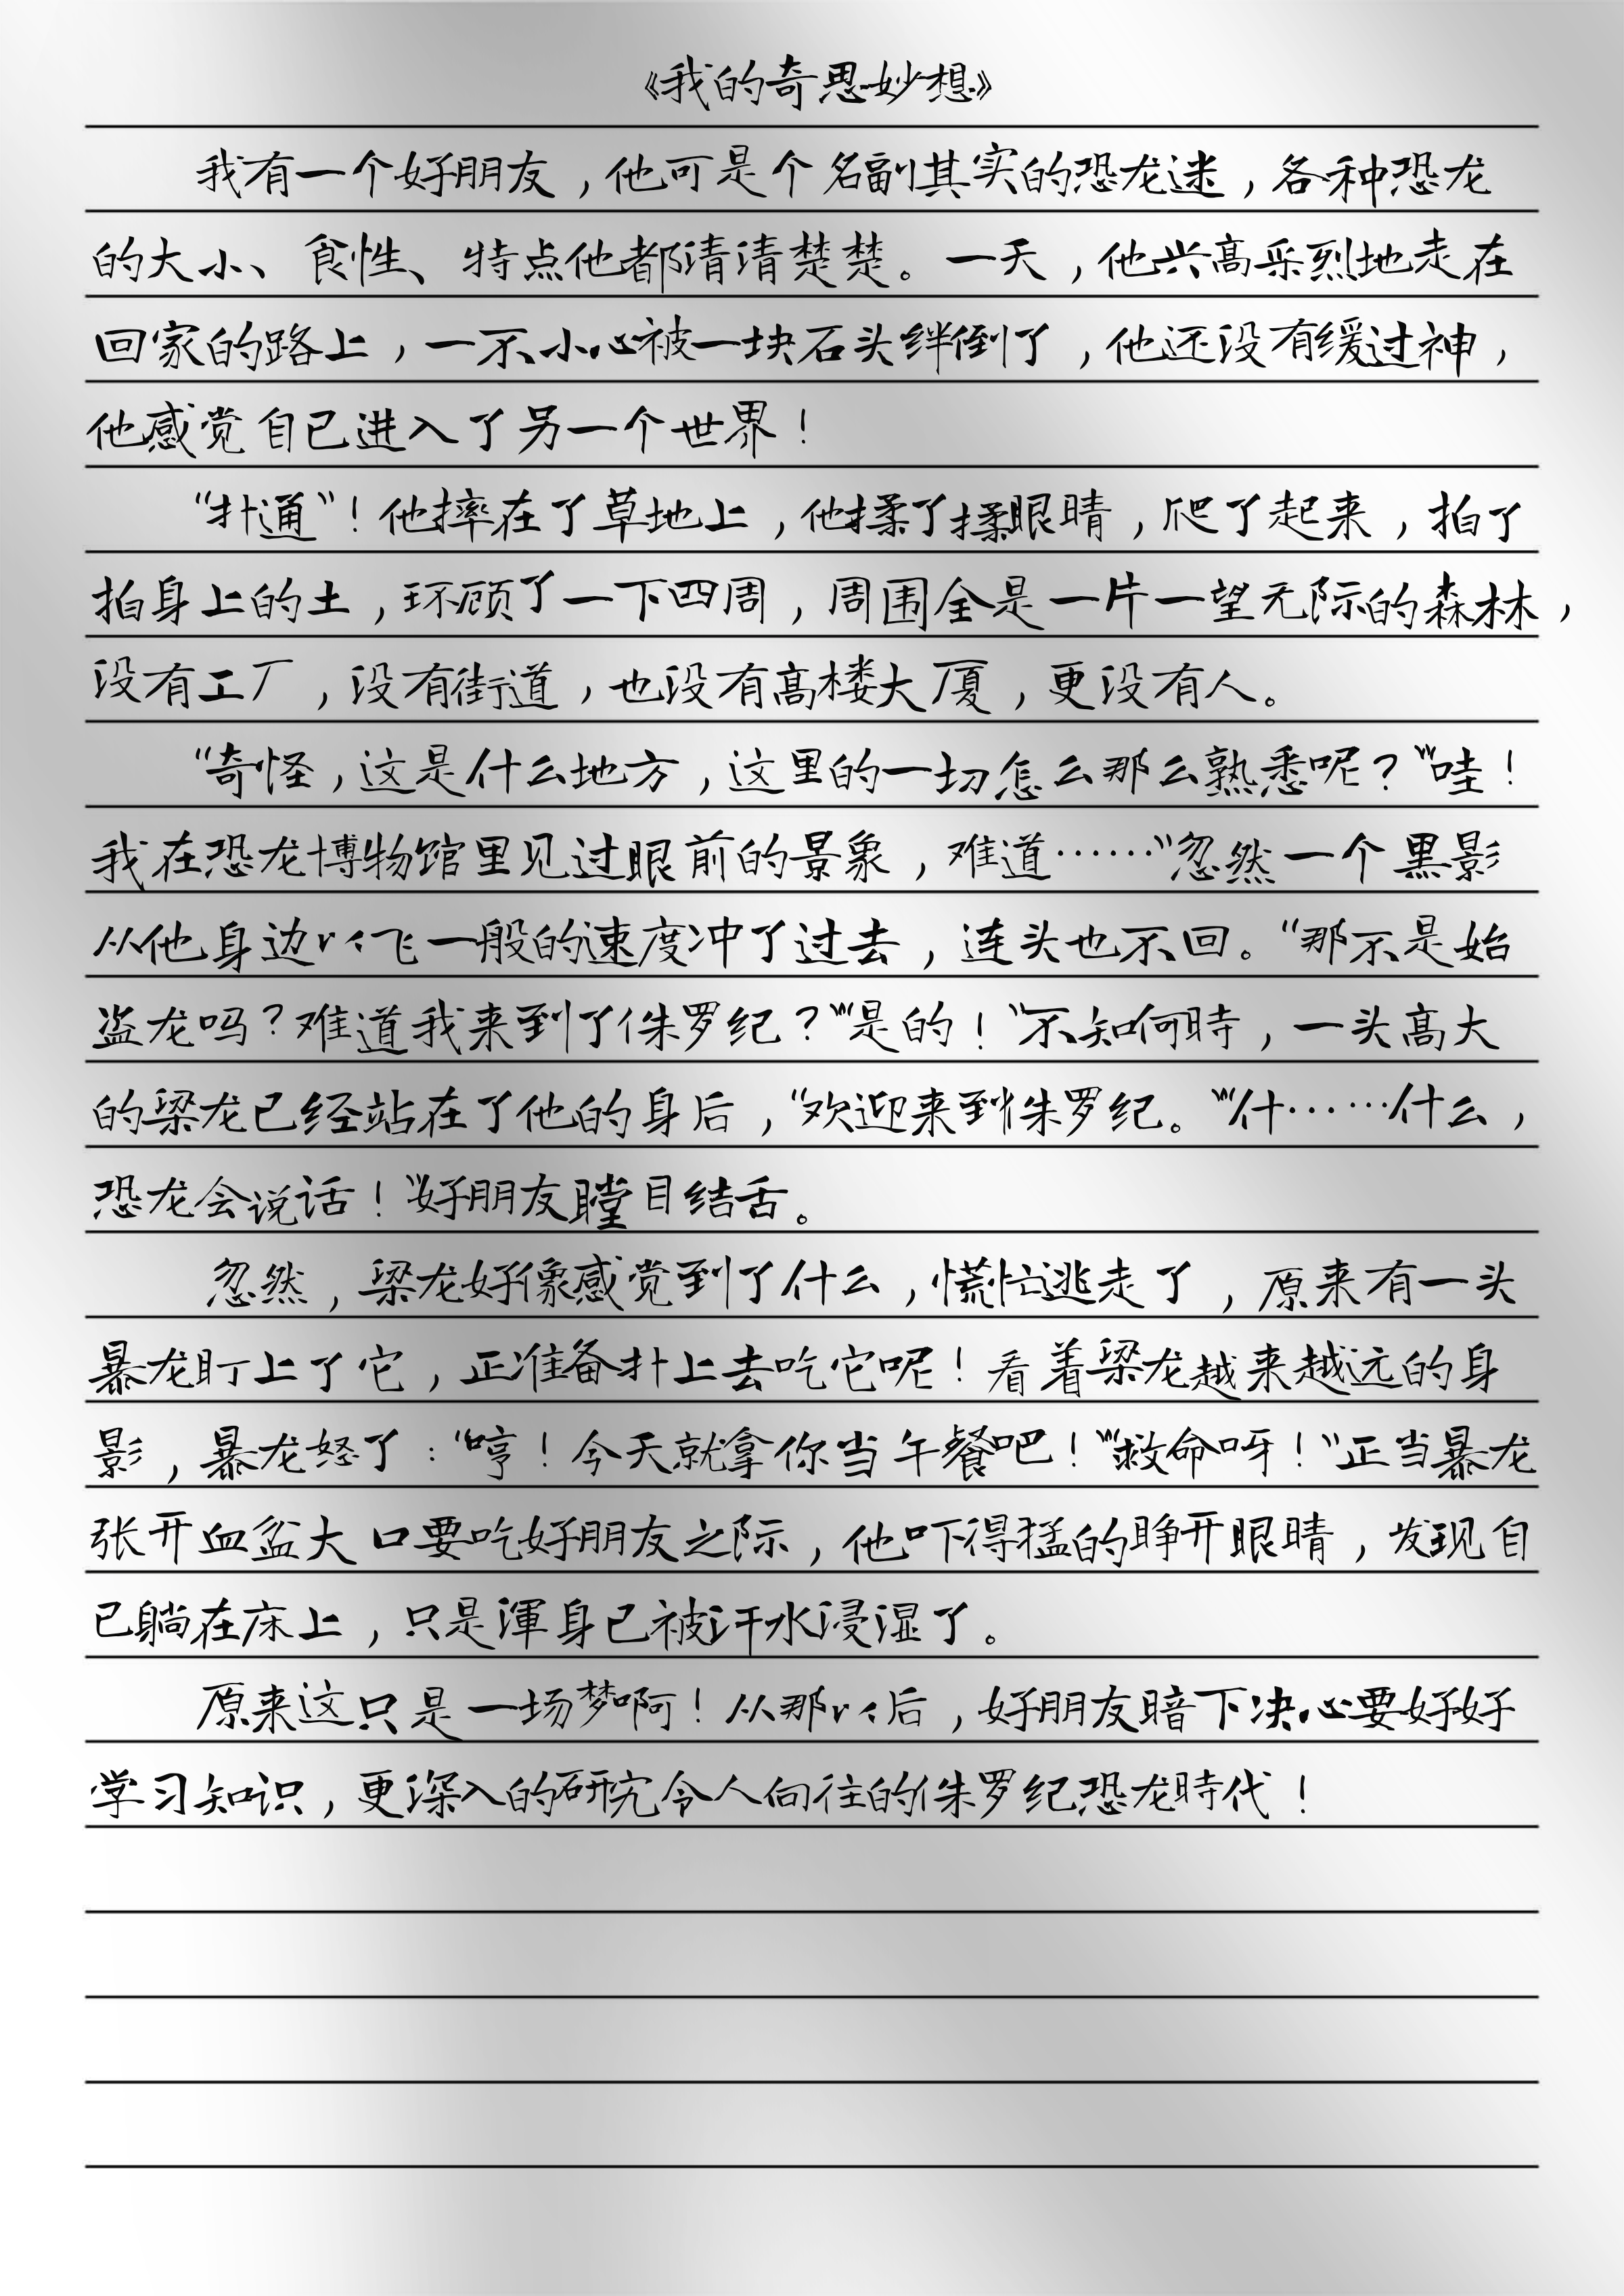 《我的奇思妙想》
我有一个好朋友，他可是个名副其实的恐龙迷，各种恐龙
的大小、食性、特点他都清清楚楚。一天，他兴高采烈地走在
回家的路上，一不小心被一块石头绊倒了，他还没有缓过神，
他感觉自己进入了另一个世界！
“扑通”！他摔在了草地上，他揉了揉眼睛，爬了起来，拍了
拍身上的土，环顾了一下四周，周围全是一片一望无际的森林，
没有工厂，没有街道，也没有高楼大厦，更没有人。
“奇怪，这是什么地方，这里的一切怎么那么熟悉呢？”“哇！
我在恐龙博物馆里见过眼前的景象，难道……”忽然一个黑影
从他身边以飞一般的速度冲了过去，连头也不回。“那不是始
盗龙吗？难道我来到了侏罗纪？”“是的！”不知何時，一头高大
的梁龙已经站在了他的身后，“欢迎来到侏罗纪。”“什……什么，
恐龙会说话！”好朋友瞠目结舌。
忽然，梁龙好像感觉到了什么，慌忙逃走了，原来有一头
暴龙盯上了它，正准备扑上去吃它呢！看着梁龙越来越远的身
影，暴龙怒了：“哼！今天就拿你当午餐吧！”“救命呀！”正当暴龙
张开血盆大口要吃好朋友之际，他吓得猛的睁开眼睛，发现自
已躺在床上，只是渾身已被汗水浸湿了。
原来这只是一场梦啊！从那以后，好朋友暗下决心要好好
学习知识，更深入的研究令人向往的侏罗纪恐龙時代！